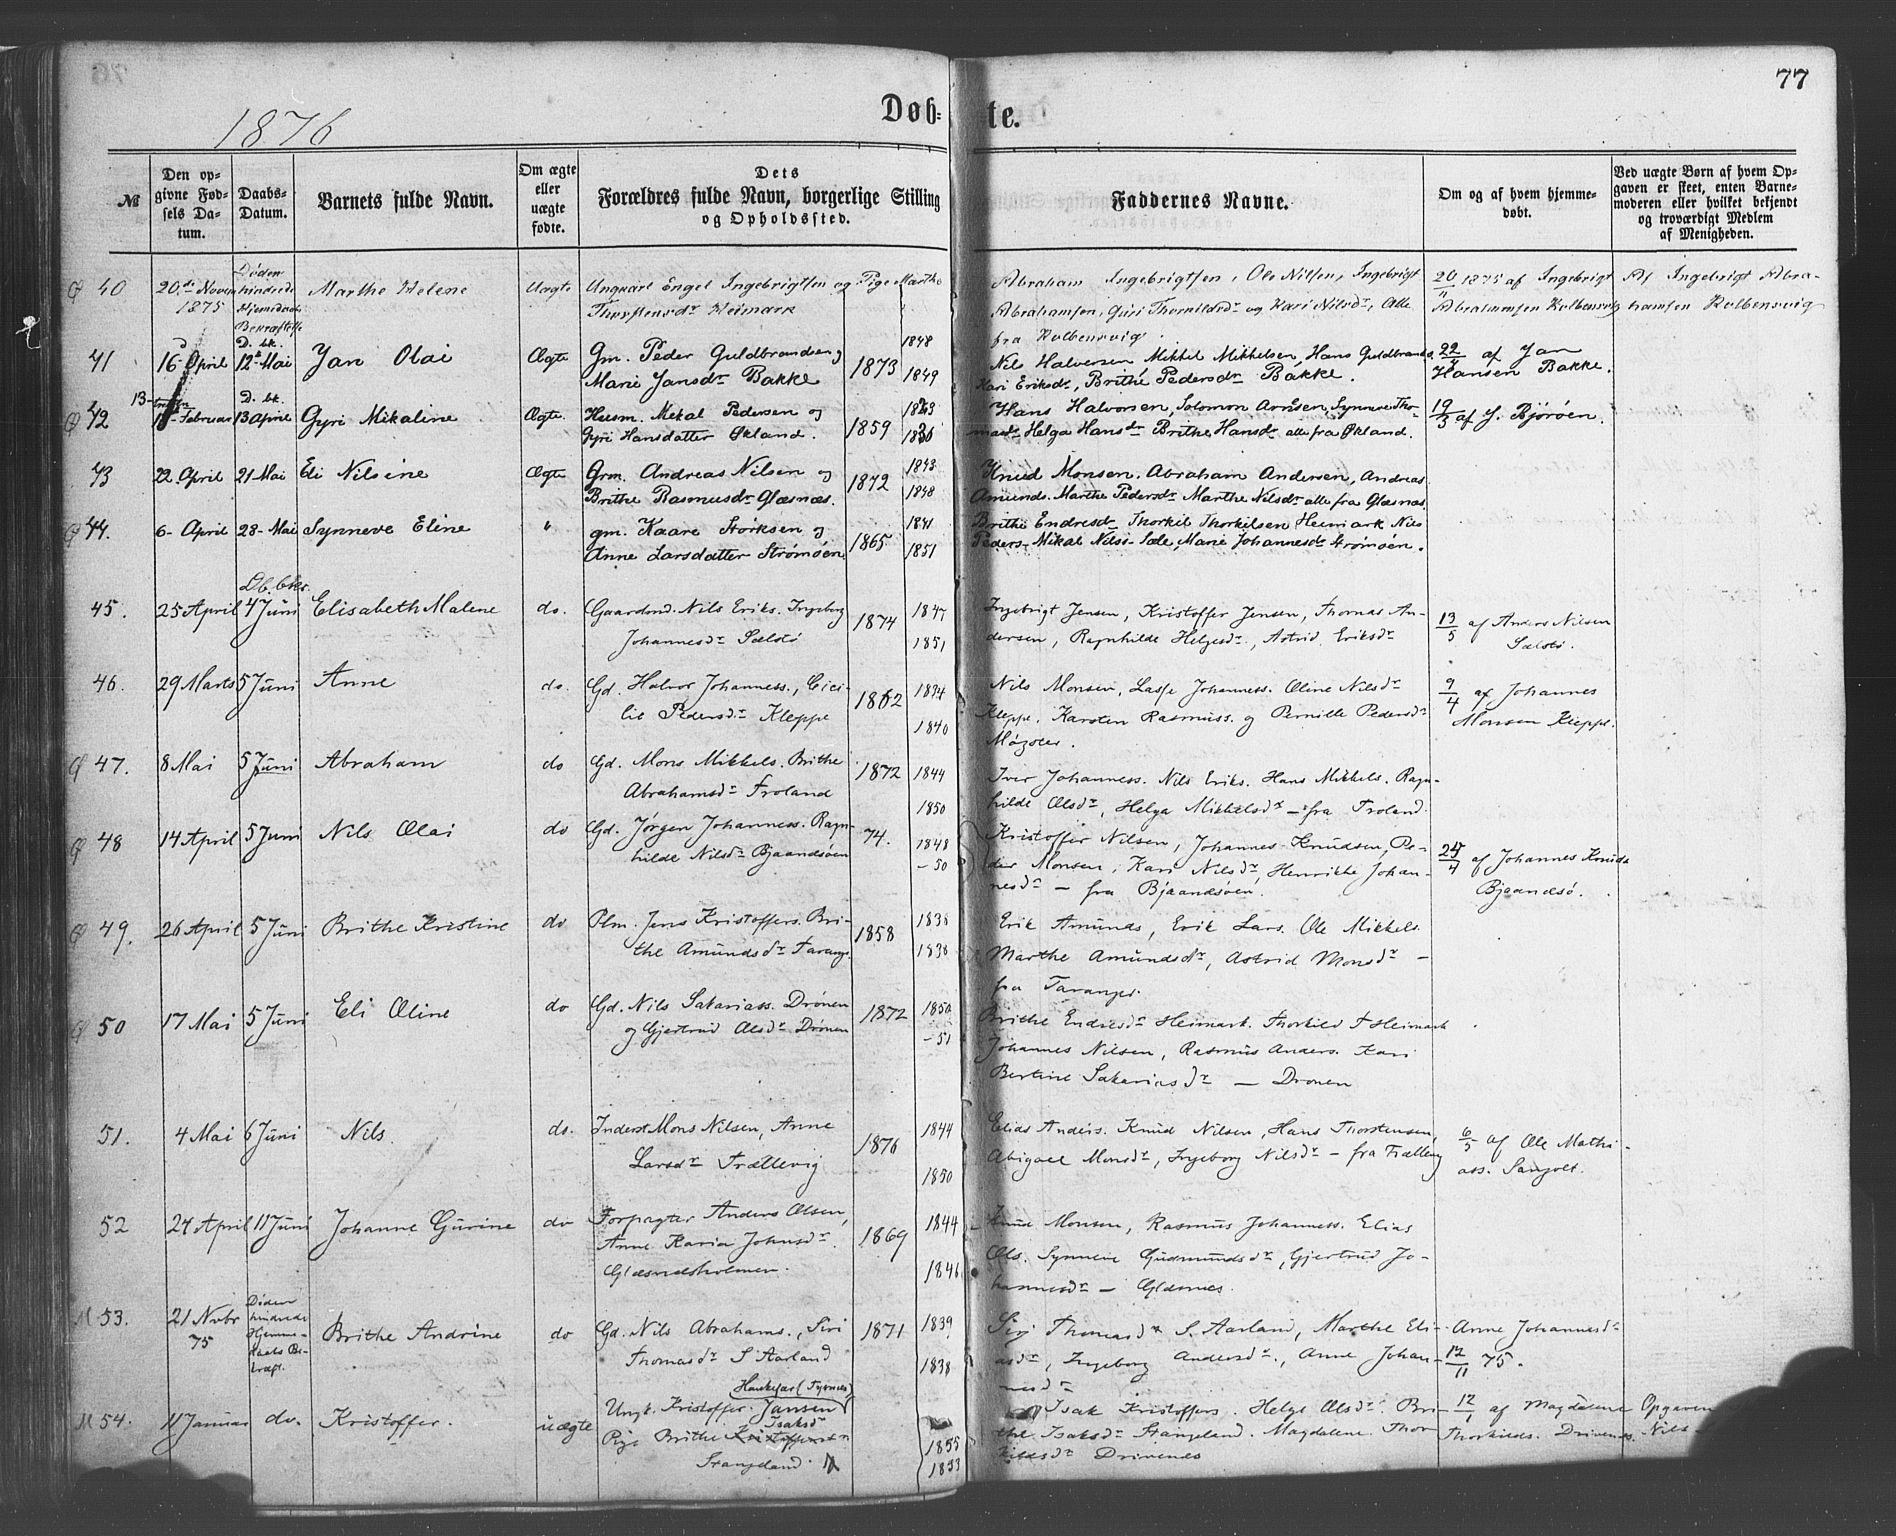 77
1876
Døb=te.
№
Den op-
givne Fød-
sels Da-
tum.
Daabs-
Datum.
Barnets fulde Navn.
Om ægte
eller
uægte
fødte.
Dets
Forældres fulde Navn, borgerlige Stilling
og Opholdssted.
Faddernes Navne.
Om og af hvem hjemme-
døbt.
Ved uægte Børn af hvem Op-
gaven er skeet, enten Barne-
moderen eller hvilket bekjendt
og troværdigt Medlem
af Menigheden.
40
20de Novem
1875
Døden
hindrede
Hjemedaabs
Bekræftelse
Marthe Helene
Uægte
Ungkarl Engel Ingebrigtsen og Pige Marthe
Thorstensdr Heimark
Abraham Ingebrigtsen, Ole Nilsen, Ingebrigt
Abrahamsen, Guri Thorkildsdr og Kari Nilsdr, Alle
fra Kolbensvig
20/11 1875 af Ingebrigt
Abrahamsen Kolbensvig
Af Ingebrigt Abra-
hamsen Kolbensvig
41
16 April
D. bk.
12te Mai
Jan Olai
Ægte
Gm. Peder Guldbrandsen og
Marie Jansdr Bakke
1873
1848
1849
Nils Halversen, Mikkel Mikkelsen, Hans Guldbrands.
Kari Eriksdr, Brithe Pedersdr Bakke.
22/4 af Jan
Hansen Bakke.
42
13-
Februar
D. bk.
13 April
Gyri Mikaline
Ægte
Husm. Mekal Pedersen og
Gyri Hansdatter Økland.
1859
Hans Halvorsen, Solomon Arnesen, Synneve Tho-
masdr Helga Hansdr Brithe Hansdr alle fra Økland.
19/3 af J. Bjørøen.
43
22 April
21 Mai
Eli Nilsine
Ægte
Grm. Andreas Nilsen og
Brithe Rasmusdr Glæsnæs.
1872
1843
1848
Knud Monsen, Abraham Andersen, Andreas
Amunds. Marthe Pedersdr Marthe Nilsdr alle fra Glæsnæs.
44.
6- April
28- Mai
Synneve Eline
"
gm. Kaare Størksen og
Anne Larsdatter Strømøen
1865
1841
1851
Brithe Endresdr Thorkil Thorkilsen Heimark Nils
Peders- Mikal Nilss- Sæle, Marie Johannesdr Strømøen.
45.
25 April
Db. bkr.
4 Juni
Elisabeth Malene
do.
Gaardmd. Nils Eriks. Ingeborg
Johannesdr Sælstø
1874
1847
1851
Ingebrigt Jensen, Kristoffer Jensen, Thomas An-
dersen, Ragnhilde Helgesdr, Astrid Eriksdr
13/5 af Anders Nilsen
Sælstø.
46.
29 Marts
5 Juni
Anne
do.
Gd. Halvor Johanness., Cici-
lie Pedersdr Kleppe
1862
1834
1840
Nils Monsen, Lasse Johanness. Oline Nilsdr
Kleppe. Karsten Rasmuss. og Pernille Pedersdr
9/4 af Johannes
Monsen Kleppe.
47.
8 Mai
5 Juni
Abraham
do
Gd. Mons Mikkels. Brithe
Abrahamsdr Froland
1872
1844
1850
Iver Johanness. Nils Eriks. Hans Mikkels. Ragn-
hilde Olsdr, Helga Mikkelsdr - fra Froland.
48
14 April
5 Juni
Nils Olai
do
Gd. Jørgen Johanness. Ragn-
hilde Nilsdr Bjaandsøen
74.
1848
- 50
Kristoffer Nilsen, Johannes Knudsen, Pe-
der Monsen, Kari Nilsdr, Henrikke Johan-
nesdr - fra Bjaandsøen.
25/4 af Johannes Knuds
Bjaandsø.
49.
26 April
5 Juni
Brithe Kristine
do
Plm. Jens Kristoffers. Bri-
the Amundsdr Taranger
1858
1838
1838
Erik Amunds, Erik Lars. Ole Mikkels.
Marthe Amundsdr, Astrid Monsdr -
fra Taranger.
50
17 Mai
5 Juni
Eli Oline
do
Gd. Nils Sakariass. Drønen
og Gjertrud Olsdr Drønen
1872
1850
- 51
Brithe Endresdr Heimark. Thorkild T Heimark
Johannes Nilsen, Rasmus Anders. Kari
Bertine Sakariasdr - Drønen
51.
4 Mai
6 Juni
Nils.
do.
Inderst Mons Nilsen, Anne
Larsdr Trællevig
1876
1844
1850
Elias Anders. Knud Nilsen, Hans Thorstensen,
Abigael Monsdr, Ingeborg Nilsdr - fra
6/5 af Ole Mathi-
ass. Sangolt.
52
24 April
11 Juni
Johanne Gurine
do
Forpagter Anders Olsen,
Anne Karia Johnsdr
Glæsnæsholmen.
1869
1844
1846
Knud Monsen, Rasmus Johanness. Elias
Ols. Synneve Gudmundsdr, Gjertrud Jo-
hannesdr - Glæsnæs.
M 53.
21 Novbr
75
Døden
hindrede
Hjemme-
daabs Be-
kræft.
Brithe Andrine
do
Gd. Nils Abrahams., Siri
Thomasdr S Aarland
1871
1839
1838
Siri Thomasdr S. Aarland, Marthe Eli-
asdr, Ingeborg Andersdr., Anne Johan-
nesdr
Anne Johannesdr
12/11 75.
M 54.
11 Januar
do.
Kristoffer.
uægte
Haukefær (Tysnes)
Ungk. Kristoffer Jansen
Isaksdr
Pige Brithe Kristoffersdr
Stangeland.
1855
1853
Isak Kristoffers. Helge Olsdr. Bri-
the Isaksdr Stangeland. Magdalene Thor-
kildsdr Drivenes
12/1 af Magdalene
Thorkilds. Drivenes.
Opgaven
Nils